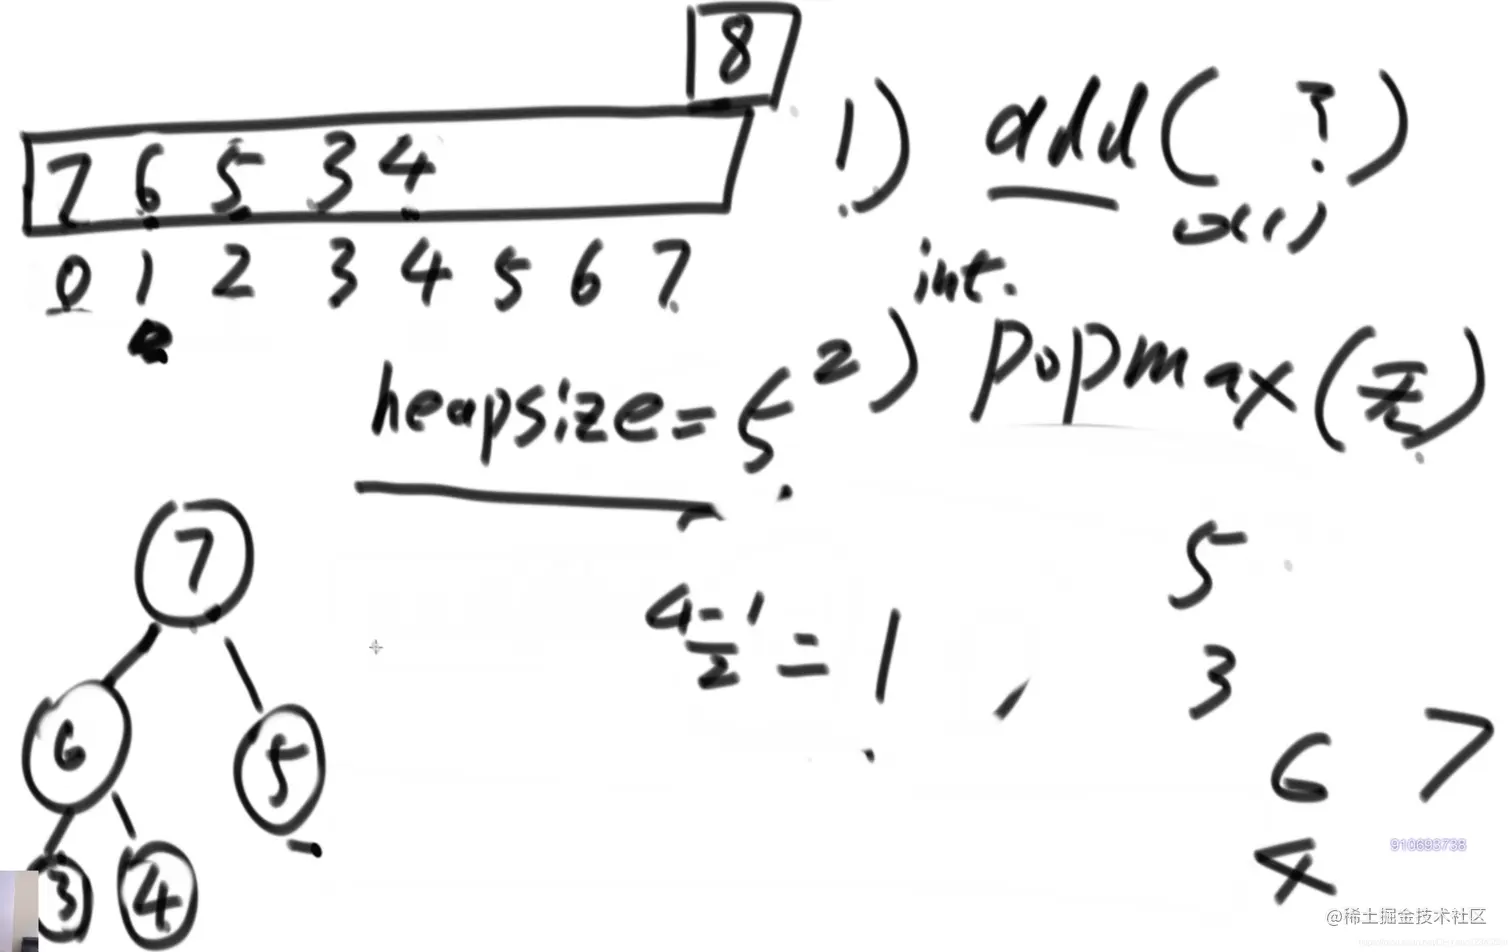 8
7 6 5 3 4
0 1 2 3 4 5 6 7
1) add( )
int.
2) popmax(无)
heapsize=5
7
6 5
3 4
4-1
2
=1
5
3
6 7
4
910693738
@稀土掘金技术社区